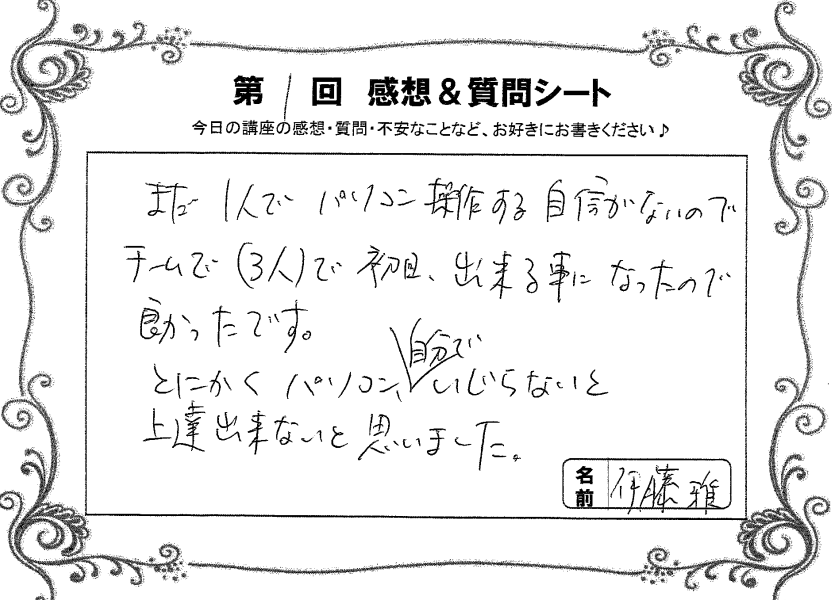 第1回 感想＆質問シート
今日の講座の感想・質問・不安なことなど、お好きにお書きください♪
まだ 1人で パソコン 操作する 自信がないので
チームで(3人)で 初日、出来る事に なったので
良かったです。
とにかく パソコン、自分で いじらないと
上達出来ないと 思いました。
名前 伊藤 雅